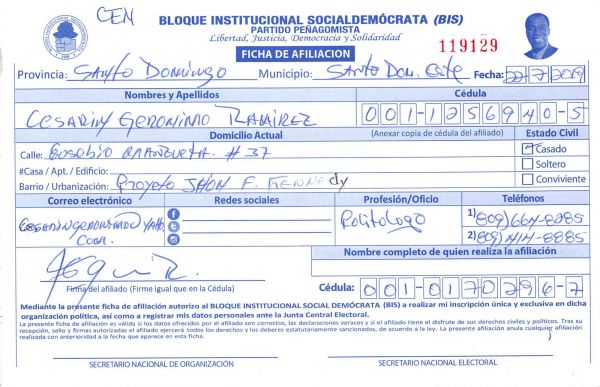 CEN
BLOQUE INSTITUCIONAL SOCIALDEMÓCRATA (BIS)
PARTIDO PEÑAGOMISTA
Libertad, Justicia, Democracia y Solidaridad
FICHA DE AFILIACION
119129
Provincia: SANTO DOMINGO Municipio: SANTO Dom. Este Fecha: 22-7-2019
Nombres y Apellidos Cédula
CESARIN GERONIMO RAMIREZ 001-1256940-5
Domicilio Actual (Anexar copia de cédula del afiliado) Estado Civil
Calle: Eusebio #37 Casado
#Casa / Apt. / Edificio: Soltero
Barrio / Urbanización: Proyeto JHON F. KENNEdy Conviviente
Correo electrónico Redes sociales Profesión/Oficio Teléfonos
Politologo 1) 809) 664-8285
Com. 2) 809) 414-8885
Nombre completo de quien realiza la afiliación
Firma del afiliado (Firme igual que en la Cédula) Cédula: 001-0170296-7
Mediante la presente ficha de afiliación autorizo al BLOQUE INSTITUCIONAL SOCIAL DEMÓCRATA (BIS) a realizar mi inscripción única y exclusiva en dicha
organización política, así como a registrar mis datos personales ante la Junta Central Electoral.
La presente ficha de afiliación es válida si los datos ofrecidos por el afiliado son correctos, las declaraciones veraces y si el afiliado tiene el disfrute de sus derechos civiles y políticos. Tras su
recepción, sello y firmas autorizadas el afiliado ejercerá todos los derechos y los deberes estatutariamente sancionados, de acuerdo a la ley. La presente afiliación anula cualquier afiliación
realizada con anterioridad a la fecha que aparece en esta ficha.
SECRETARIO NACIONAL DE ORGANIZACIÓN SECRETARIO NACIONAL ELECTORAL